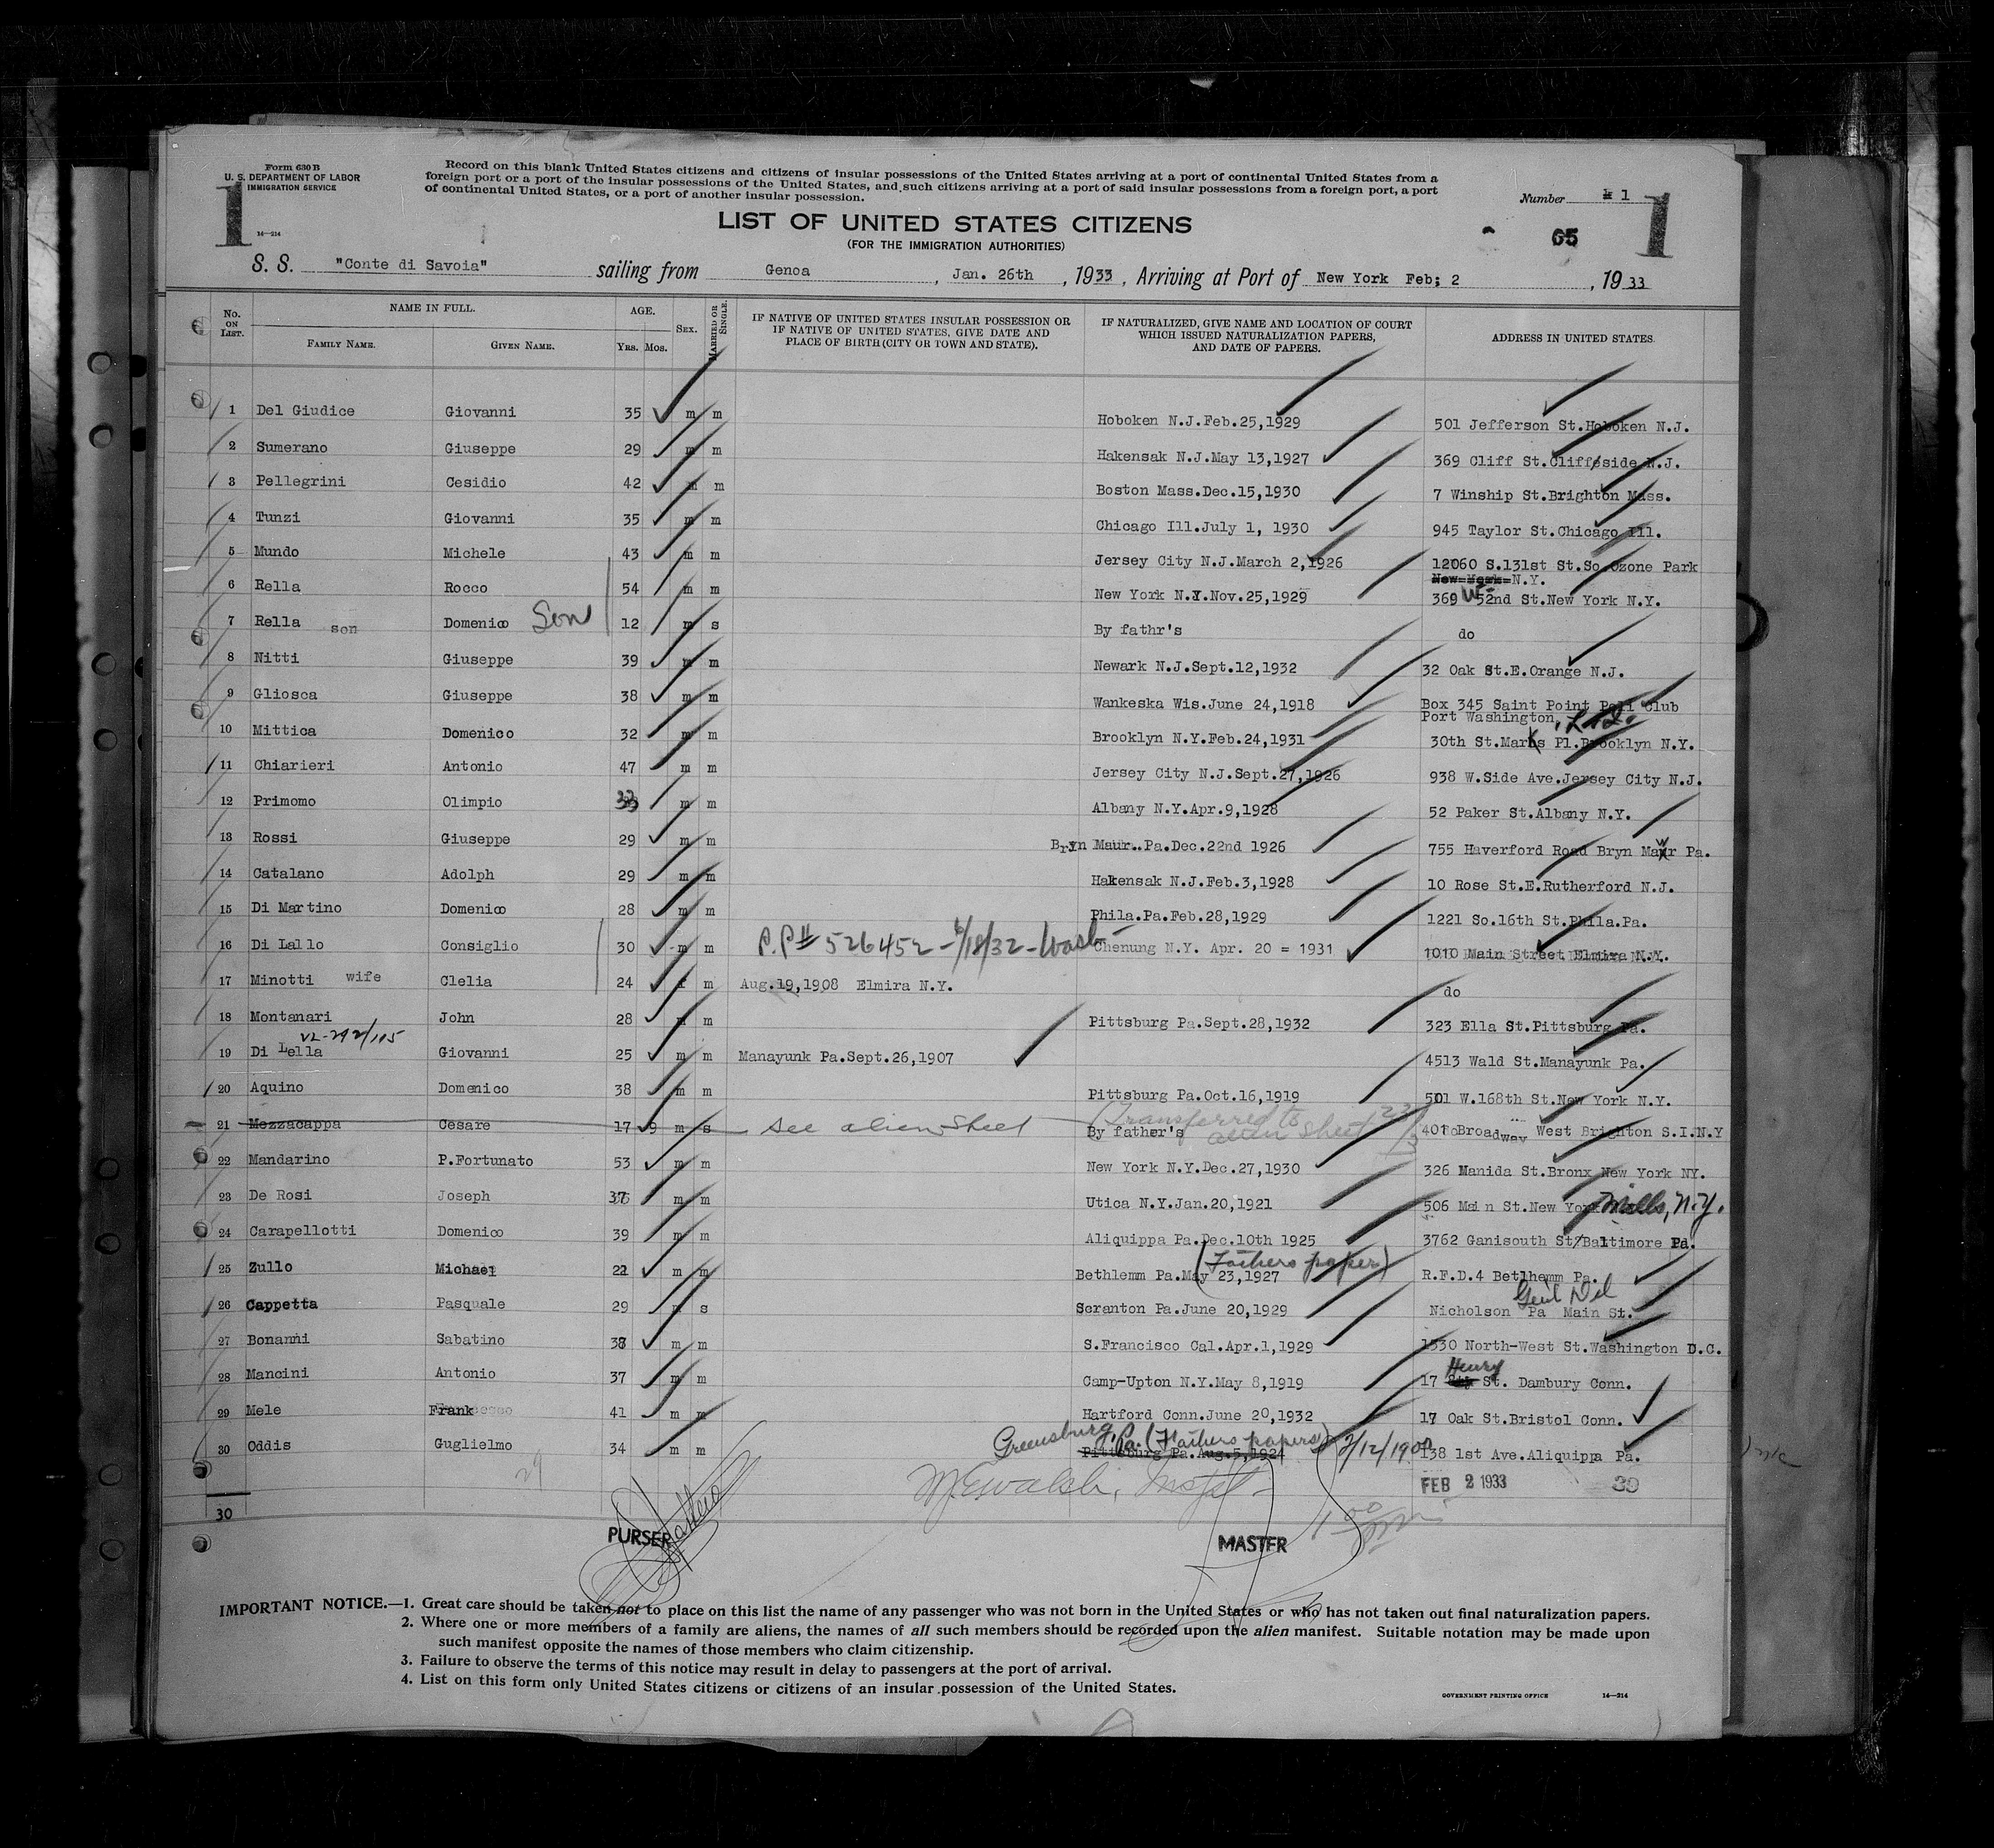 Form 630 B
U. S. DEPARTMENT OF LABOR
IMMIGRATION SERVICE
1
14—214
Record on this blank United States citizens and citizens of insular possessions of the United States arriving at a port of continental United States from a
foreign port or a port of the insular possessions of the United States, and such citizens arriving at a port of said insular possessions from a foreign port, a port
of continental United States, or a port of another insular possession.
Number 1
1
LIST OF UNITED STATES CITIZENS
(FOR THE IMMIGRATION AUTHORITIES)
65
S. S. "Conte di Savoia" sailing from Genoa, Jan. 26th, 1933, Arriving at Port of New York Feb; 2, 1933
No. ON LIST.
NAME IN FULL.
FAMILY NAME.
GIVEN NAME.
AGE.
YRS. MOS.
SEX.
MARRIED OR SINGLE.
IF NATIVE OF UNITED STATES INSULAR POSSESSION OR
IF NATIVE OF UNITED STATES, GIVE DATE AND
PLACE OF BIRTH (CITY OR TOWN AND STATE).
IF NATURALIZED, GIVE NAME AND LOCATION OF COURT
WHICH ISSUED NATURALIZATION PAPERS,
AND DATE OF PAPERS.
ADDRESS IN UNITED STATES.
1 Del Giudice Giovanni 35 m m Hoboken N.J.Feb.25,1929 501 Jefferson St.Hoboken N.J.
2 Sumerano Giuseppe 29 m m Hakensak N.J.May 13,1927 369 Cliff St.Cliffeside N.J.
3 Pellegrini Cesidio 42 m m Boston Mass.Dec.15,1930 7 Winship St.Brighton Mass.
4 Tunzi Giovanni 35 m m Chicago Ill.July 1, 1930 945 Taylor St.Chicago Ill.
5 Mundo Michele 43 m m Jersey City N.J.March 2,1926 12060 S.131st St.So.Ozone Park
New York N.Y.
6 Rella Rocco 54 m m New York N.Y.Nov.25,1929 369 W 52nd St.New York N.Y.
7 Rella son Domenico Son 12 m s By fathr's do
8 Nitti Giuseppe 39 m m Newark N.J.Sept.12,1932 32 Oak St.E.Orange N.J.
9 Gliosca Giuseppe 38 m m Wankeska Wis.June 24,1918 Box 345 Saint Point Poli Club
Port Washington, L.I.
10 Mittica Domenico 32 m m Brooklyn N.Y.Feb.24,1931 30th St.Marks Pl.Brooklyn N.Y.
11 Chiarieri Antonio 47 m m Jersey City N.J.Sept.27,1926 938 W.Side Ave.Jersey City N.J.
12 Primomo Olimpio 33 m m Albany N.Y.Apr.9,1928 52 Paker St.Albany N.Y.
13 Rossi Giuseppe 29 m m Bryn Maur..Pa.Dec.22nd 1926 755 Haverford Road Bryn Mawr Pa.
14 Catalano Adolph 29 m m Hakensak N.J.Feb.3,1928 10 Rose St.E.Rutherford N.J.
15 Di Martino Domenico 28 m m Phila.Pa.Feb.28,1929 1221 So.16th St.Phila.Pa.
16 Di Lallo Consiglio 30 m m P.P# 526452-6/18/32-Wash- Chenung N.Y. Apr. 20 = 1931 1010 Main Street Elmira N.Y.
17 Minotti wife Clelia 24 f m Aug.19,1908 Elmira N.Y. do
18 Montanari John 28 m m Pittsburg Pa.Sept.28,1932 323 Ella St.Pittsburg Pa.
VL-292/105
19 Di Lella Giovanni 25 m m Manayunk Pa.Sept.26,1907 4513 Wald St.Manayunk Pa.
20 Aquino Domenico 38 m m Pittsburg Pa.Oct.16,1919 501 W.168th St.New York N.Y.
21 Mezzacappa Cesare 17 9 m s see alien sheet (Transferred to alien sheet By father's 401 Broadway West Brighton S.I.N.Y
22 Mandarino P.Fortunato 53 m m New York N.Y.Dec.27,1930 326 Manida St.Bronx New York NY.
23 De Rosi Joseph 37 m m Utica N.Y.Jan.20,1921 506 Main St.New York Mills, N.Y.
24 Carapellotti Domenico 39 m m Aliquippa Pa.Dec.10th 1925 3762 Ganisouth St/Baltimore Pa.
25 Zullo Michael 22 m m Bethlemm Pa.May 23,1927 (Fathers paper) R.F.D.4 Betlhemm Pa.
26 Cappetta Pasquale 29 m s Scranton Pa.June 20,1929 Nicholson Pa Main St. Genl Del
27 Bonanni Sabatino 38 m m S.Francisco Cal.Apr.1,1929 1330 North-West St.Washington D.C.
28 Mancini Antonio 37 m m Camp-Upton N.Y.May 8,1919 17 Henry St. Dambury Conn.
29 Mele Frank 41 m m Hartford Conn.June 20,1932 17 Oak St.Bristol Conn.
30 Oddis Guglielmo 34 m m Greensburg, Pa. (Fathers papers) 2/12/1900 Pittsburg Pa.Aug.5,1924 138 1st Ave.Aliquippa Pa.
29
FEB 2 1933
30
30
PURSER
MASTER
IMPORTANT NOTICE.—1. Great care should be taken not to place on this list the name of any passenger who was not born in the United States or who has not taken out final naturalization papers.
2. Where one or more members of a family are aliens, the names of all such members should be recorded upon the alien manifest. Suitable notation may be made upon
such manifest opposite the names of those members who claim citizenship.
3. Failure to observe the terms of this notice may result in delay to passengers at the port of arrival.
4. List on this form only United States citizens or citizens of an insular possession of the United States.
GOVERNMENT PRINTING OFFICE 14—214